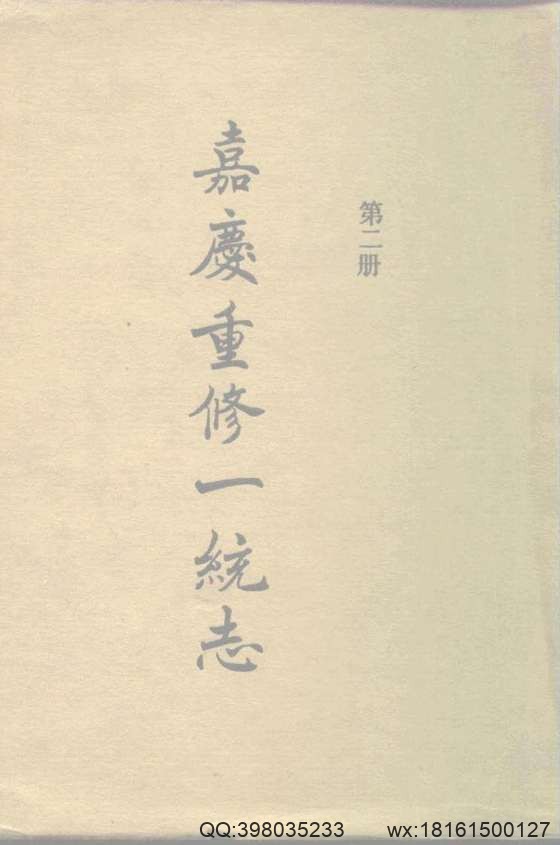 第二册
嘉慶重修一統志
QQ:398035233 wx:18161500127